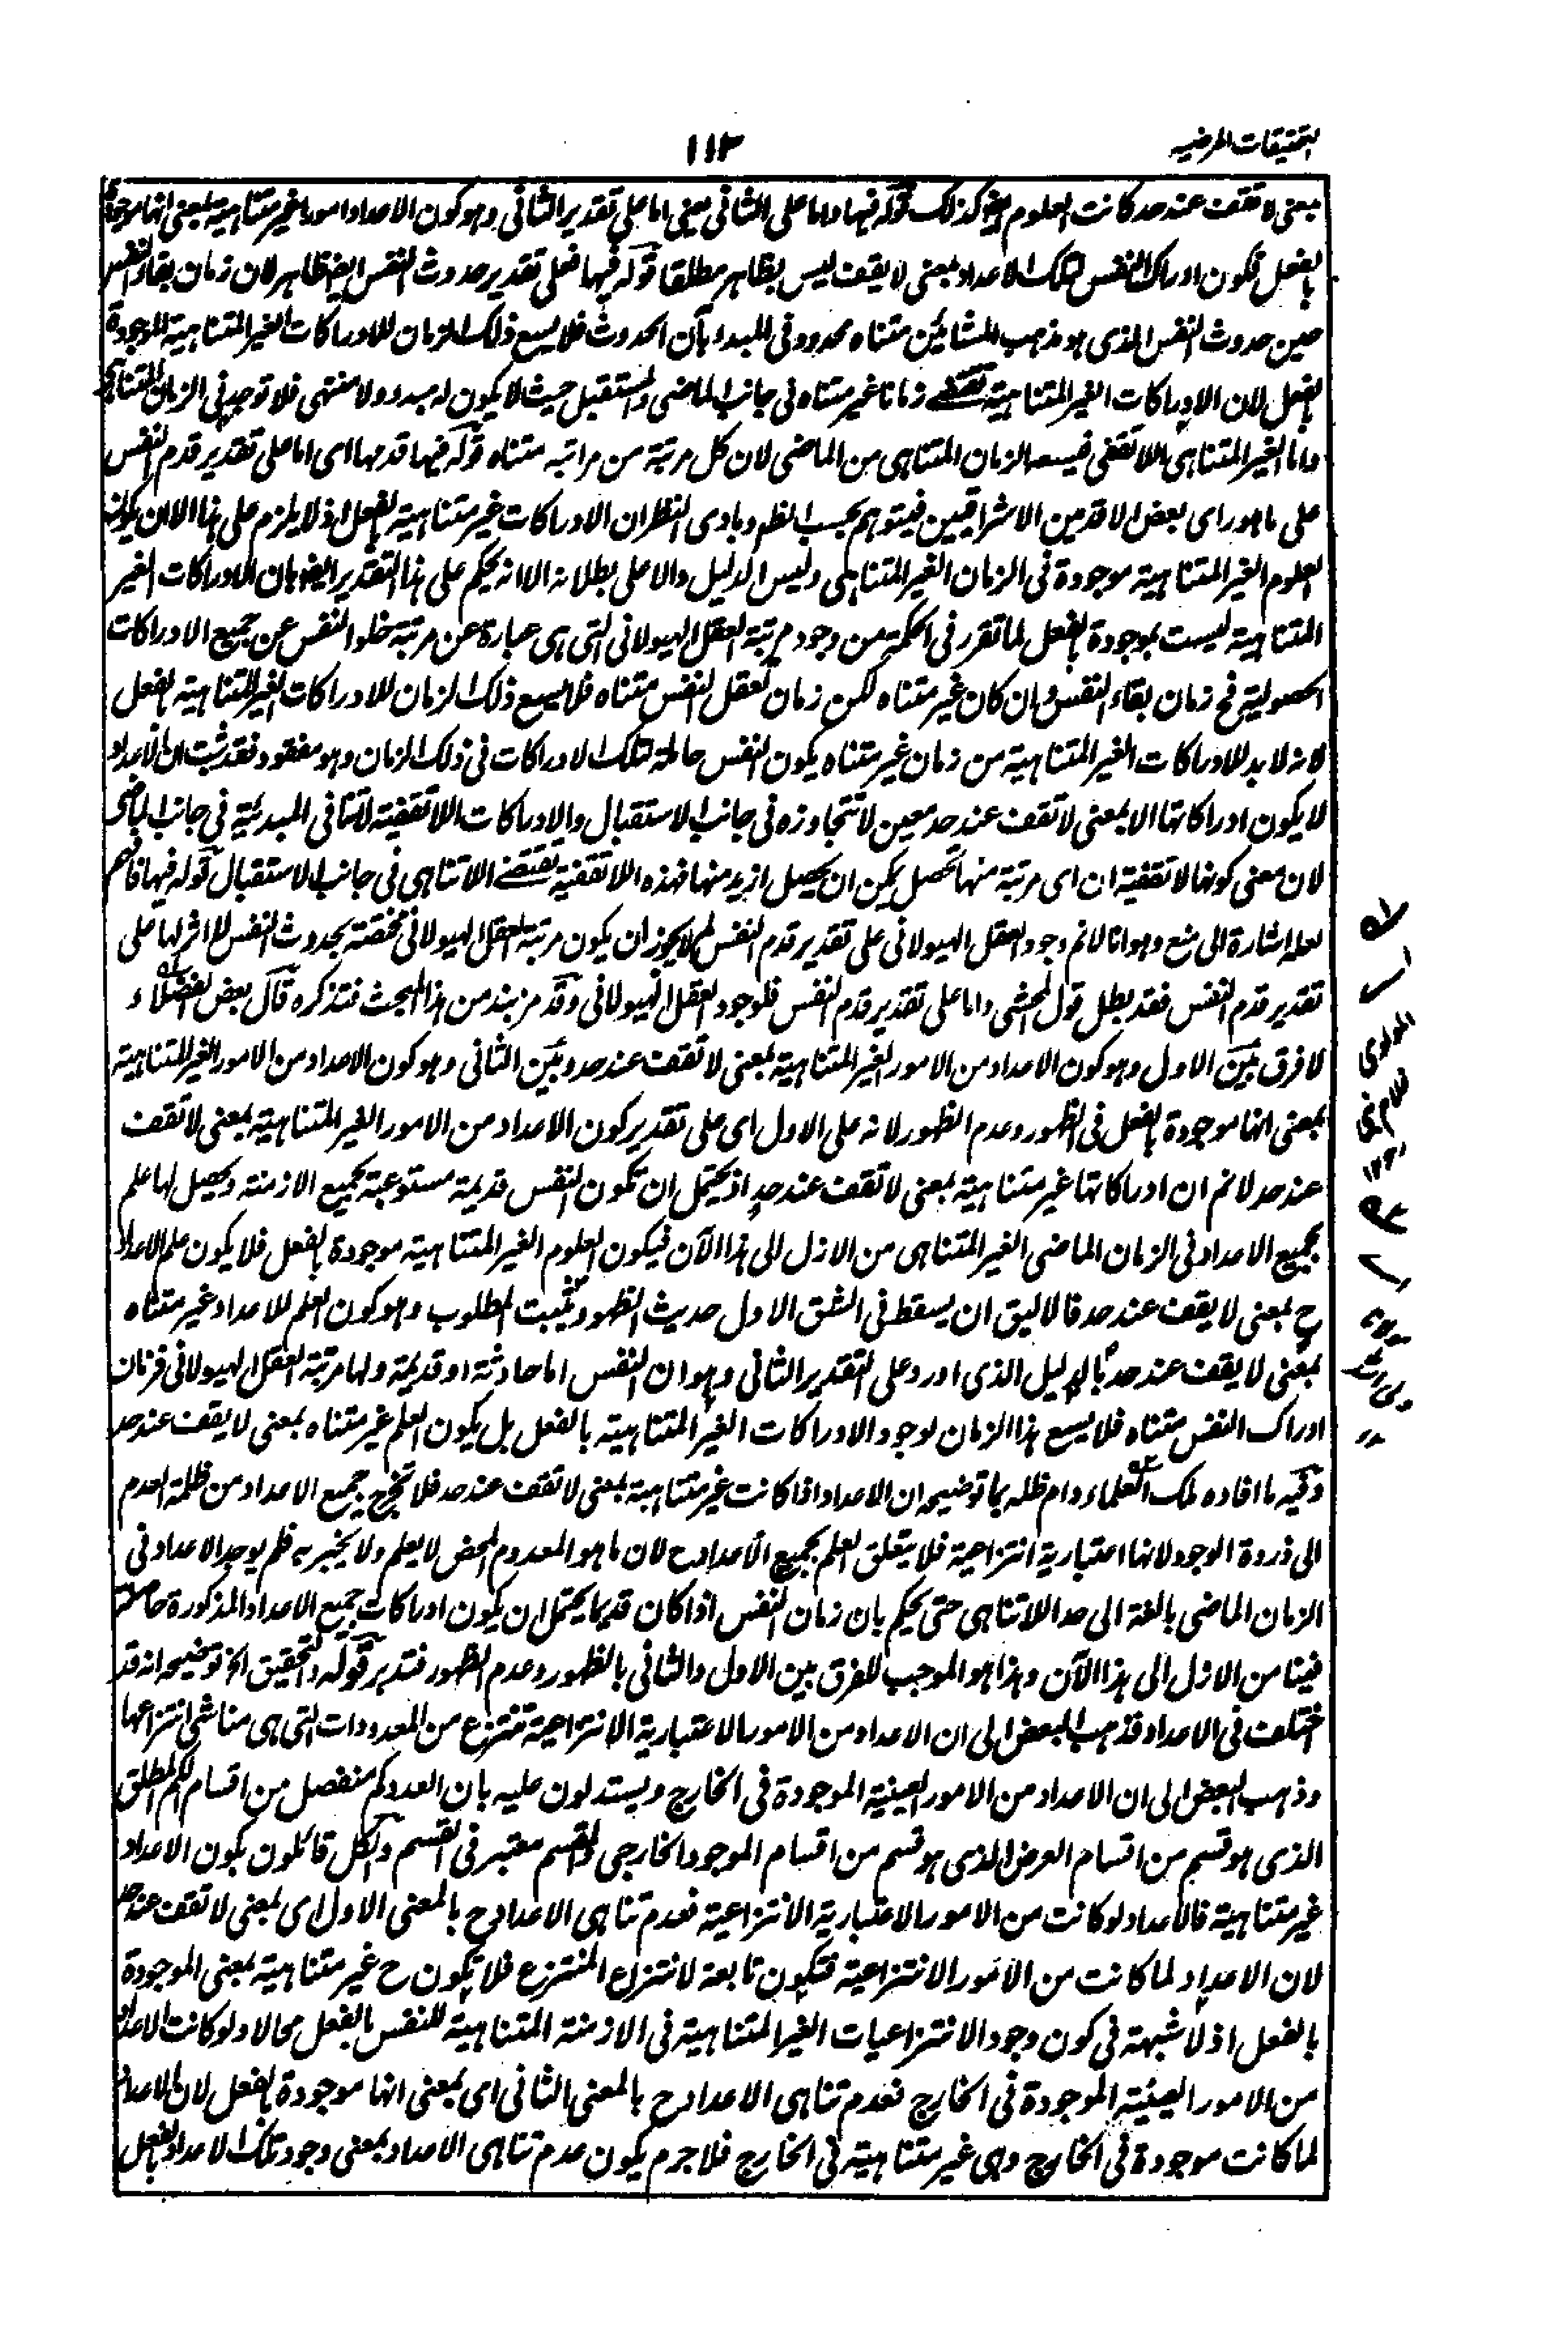 التحقيقات المرضيه
١١٣
بمعنى لا تقف عند حد كانت العلوم ايض كذلك قوله فيها واما على الثانى يعنى اما على تقدير الثانى وهو كون الاعداد امورا غير متناهية بمعنى انها موجودة
بالفعل فكون ادراك النفس لتلك الاعداد بمعنى لا يقف ليس بظاهر مطلقا قوله فيها فعلى تقدير حدوث النفس ايض ظاهر لان زمان بقاء النفس
حين حدوث النفس الذى هو مذهب المشائين متناه محدود فى المبدء بآن الحدوث فلا يسع ذلك الزمان للادراكات الغير المتناهية الموجودة
بالفعل لان الادراكات الغير المتناهية تقتضى زمانا غير متناه فى جانب الماضى والمستقبل حيث لا يكون له مبدء ولا منتهى فلا توجد فى الزمان المتناهى
واما الغير المتناهى اللا تقفى فيسعه الزمان المتناهى من الماضى لان كل مرتبة من مراتبه متناه قوله فيها قدمها اى اما على تقدير قدم النفس
على ما هو راى بعض الاقدمين الاشراقيين فيتوهم بحسب الظم وبادى النظر ان الادراكات غير متناهية بالفعل اذ لا يلزم على هذا الا ان يكون
العلوم الغير المتناهية موجودة فى الزمان الغير المتناهى وليس الدليل والا على بطلانه الا انه يحكم على هذا التقدير ايض بان الادراكات الغير
المتناهية ليست بموجودة بالفعل لما تقرر فى الحكمة من وجود مرتبة العقل الهيولانى التى هى عبارة عن مرتبة خلو النفس عن جميع الادراكات
الحصولية فح زمان بقاء النفس وان كان غير متناه لكن زمان تعقل النفس متناه فلا يسع ذلك الزمان للادراكات الغير المتناهية بالفعل
لانه لا بد للادراكات الغير المتناهية من زمان غير متناه يكون النفس حاملة لتلك الادراكات فى ذلك الزمان وهو مفقود فقد ثبت ان الاعداد
لا يكون ادراكاتها الا بمعنى لا تقف عند حد معين لا تتجاوزه فى جانب الاستقبال والادراكات اللا تقفية لا تنافى المبدئية فى جانب الماضى
لان معنى كونها لا تقفية ان اى مرتبة منها تحصل يمكن ان يحصل ازيد منها فهذه اللا تقفية تقتضى اللا تناهى فى جانب الاستقبال قوله فيها فافهم
لعله اشارة الى منع وهو انا لا نم وجود العقل الهيولانى على تقدير قدم النفس لم لا يجوز ان يكون مرتبة العقل الهيولانى مختصة بحدوث النفس لا اثر لها على
تقدير قدم النفس فقد بطل قول المحشى واما على تقدير قدم النفس فلوجود العقل الهيولانى وقد مر نبذ من هذا البحث فتذكره قال بعض الفضلاء
لا فرق بين الاول وهو كون الاعداد من الامور الغير المتناهية بمعنى لا تقف عند حد وبين الثانى وهو كون الاعداد من الامور الغير المتناهية
بمعنى انها موجودة بالفعل فى الظهور وعدم الظهور لانه على الاول اى على تقدير كون الاعداد من الامور الغير المتناهية بمعنى لا تقف
عند حد لا نم ان ادراكاتها غير متناهية بمعنى لا تقف عند حد اذ يحتمل ان تكون النفس قديمة مستوعبة بجميع الازمنة ويحصل لها علم
بجميع الاعداد فى الزمان الماضى الغير المتناهى من الازل الى هذا الآن فيكون العلوم الغير المتناهية موجودة بالفعل فلا يكون علم الاعداد
ح بمعنى لا يقف عند حد فالاليق ان يسقط فى الشق الاول حديث الظهور ويثبت المطلوب وهو كون العلم للاعداد غير متناه
بمعنى لا يقف عند حد بالدليل الذى اورد على التقدير الثانى وهو ان النفس اما حادثة او قديمة ولها مرتبة العقل الهيولانى فزمان
ادراك النفس متناه فلا يسع هذا الزمان لوجود الادراكات الغير المتناهية بالفعل بل يكون العلم غير متناه بمعنى لا يقف عند حد
وفيه ما افاده ملك العلماء دام ظله بما توضيحه ان الاعداد اذا كانت غير متناهية بمعنى لا تقف عند حد فلا تخرج جميع الاعداد من ظلمة العدم
الى ذروة الوجود لانها اعتبارية انتزاعية فلا يتعلق العلم بجميع الاعداد ح لان ما هو المعدوم المحض لا يعلم ولا يخبر به فلم يوجد الاعداد فى
الزمان الماضى بالغة الى حد اللا تناهى حتى يحكم بان زمان النفس اذا كان قديما يحتمل ان يكون ادراكات جميع الاعداد المذكورة حاصلة
فينا من الازل الى هذا الآن وهذا هو الموجب للفرق بين الاول والثانى بالظهور وعدم الظهور فتدبر قوله والتحقيق الخ توضيحه انه قد
اختلف فى الاعداد فذهب البعض الى ان الاعداد من الامور الاعتبارية الانتزاعية تنتزع من المعدودات التى هى مناشى انتزاعها
وذهب البعض الى ان الاعداد من الامور العينية الموجودة فى الخارج ويستدلون عليه بان العدد كم منفصل من اقسام الكم المطلق
الذى هو قسم من اقسام العرض الذى هو قسم من اقسام الموجود الخارجى والمقسم معتبر فى القسم والكل قائلون بكون الاعداد
غير متناهية فالاعداد لو كانت من الامور الاعتبارية الانتزاعية فعدم تناهى الاعداد ح بالمعنى الاول اى بمعنى لا تقف عند حد
لان الاعداد لما كانت من الامور الانتزاعية فتكون تابعة لانتزاع المنتزع فلا يكون ح غير متناهية بمعنى الموجودة
بالفعل اذ لا شبهة فى كون وجود الانتزاعيات الغير المتناهية فى الازمنة المتناهية للنفس بالفعل محالا ولو كانت الاعداد
من الامور العينية الموجودة فى الخارج فعدم تناهى الاعداد ح بالمعنى الثانى اى بمعنى انها موجودة بالفعل لان الاعداد
لما كانت موجودة فى الخارج وهى غير متناهية فى الخارج فلا جرم يكون عدم تناهى الاعداد بمعنى وجود تلك الاعداد بالفعل
المولوى